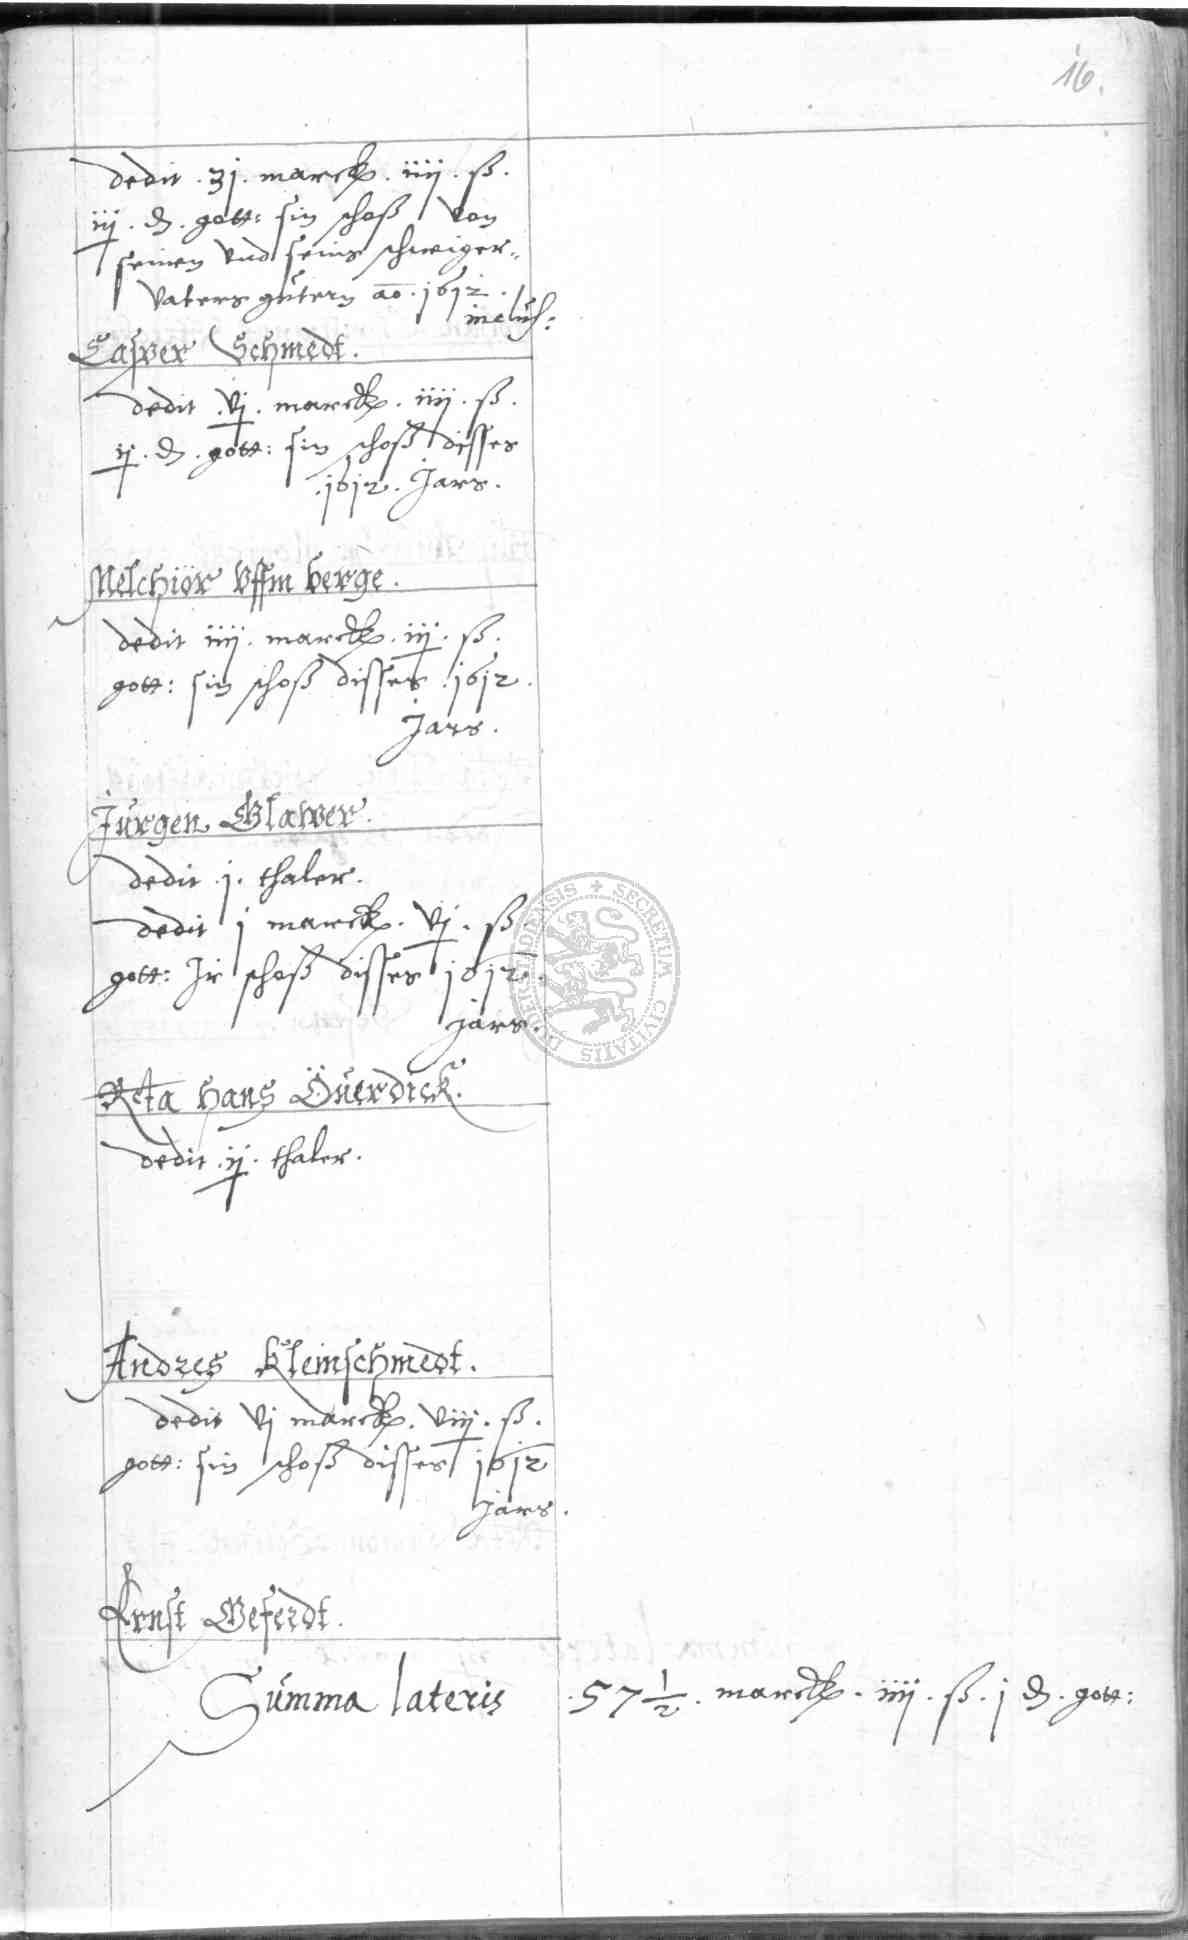 16.
dedit . 31 . marck . iiij . ß .
iij . ₰ . gott: sin schoß von
seinen vnd seins schwiger-
vaters gütern ao . 1612 .
inclus:
Casper Schmedt .
dedit . vj . marck . iiij . ß .
ij . ₰ . gott: sin schoß disses
. 1612 . Jars .
Melchior vffm berge .
dedit iiij . marck . iij . ß .
gott: sin schoß disses . 1612 .
Jars .
Jürgen Glawer .
dedit . j . thaler .
dedit j marck . vj . ß
gott: Ir schoß disses 1612 .
jars .
Rcta Hans Öuerdick .
dedit . ij . thaler .
Andres Kleinschmedt .
dedit vj marck . viij . ß .
gott: sin schoß disses 1612
jars .
Ernst Geferdt .
Summa lateris . 57 1/2 . marck . iiij . ß . j ₰ . gott:
SECRETUM CIVITATIS DUDERSTADIENSIS